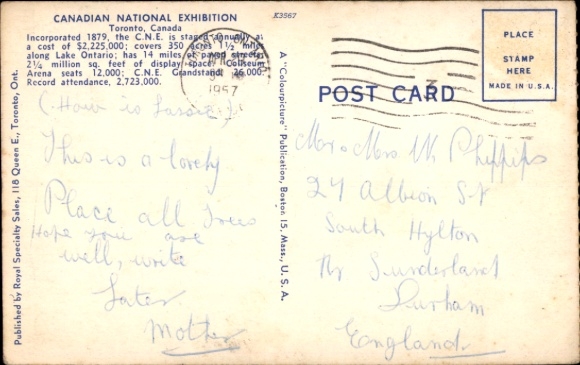 CANADIAN NATIONAL EXHIBITION
Toronto, Canada
Incorporated 1879, the C.N.E. is staged annually at
a cost of $2,225,000; covers 350 acres 1½ miles
along Lake Ontario; has 14 miles of paved streets,
2¼ million sq. feet of display space. Coliseum
Arena seats 12,000; C.N.E. Grandstand, 26,000.
Record attendance, 2,723,000.
K3567
1957
(How is
This is a lovely
Place all Trees
Hope you are
well, write
Later
Mother
Published by Royal Specialty Sales, 118 Queen E., Toronto, Ont.
A "Colourpicture" Publication, Boston 15, Mass., U.S.A.
POST CARD
PLACE
STAMP
HERE
MADE IN U.S.A.
Mr & Mrs W Phillips
24 Albion St
South Hylton
Nr Sunderland
Durham
England